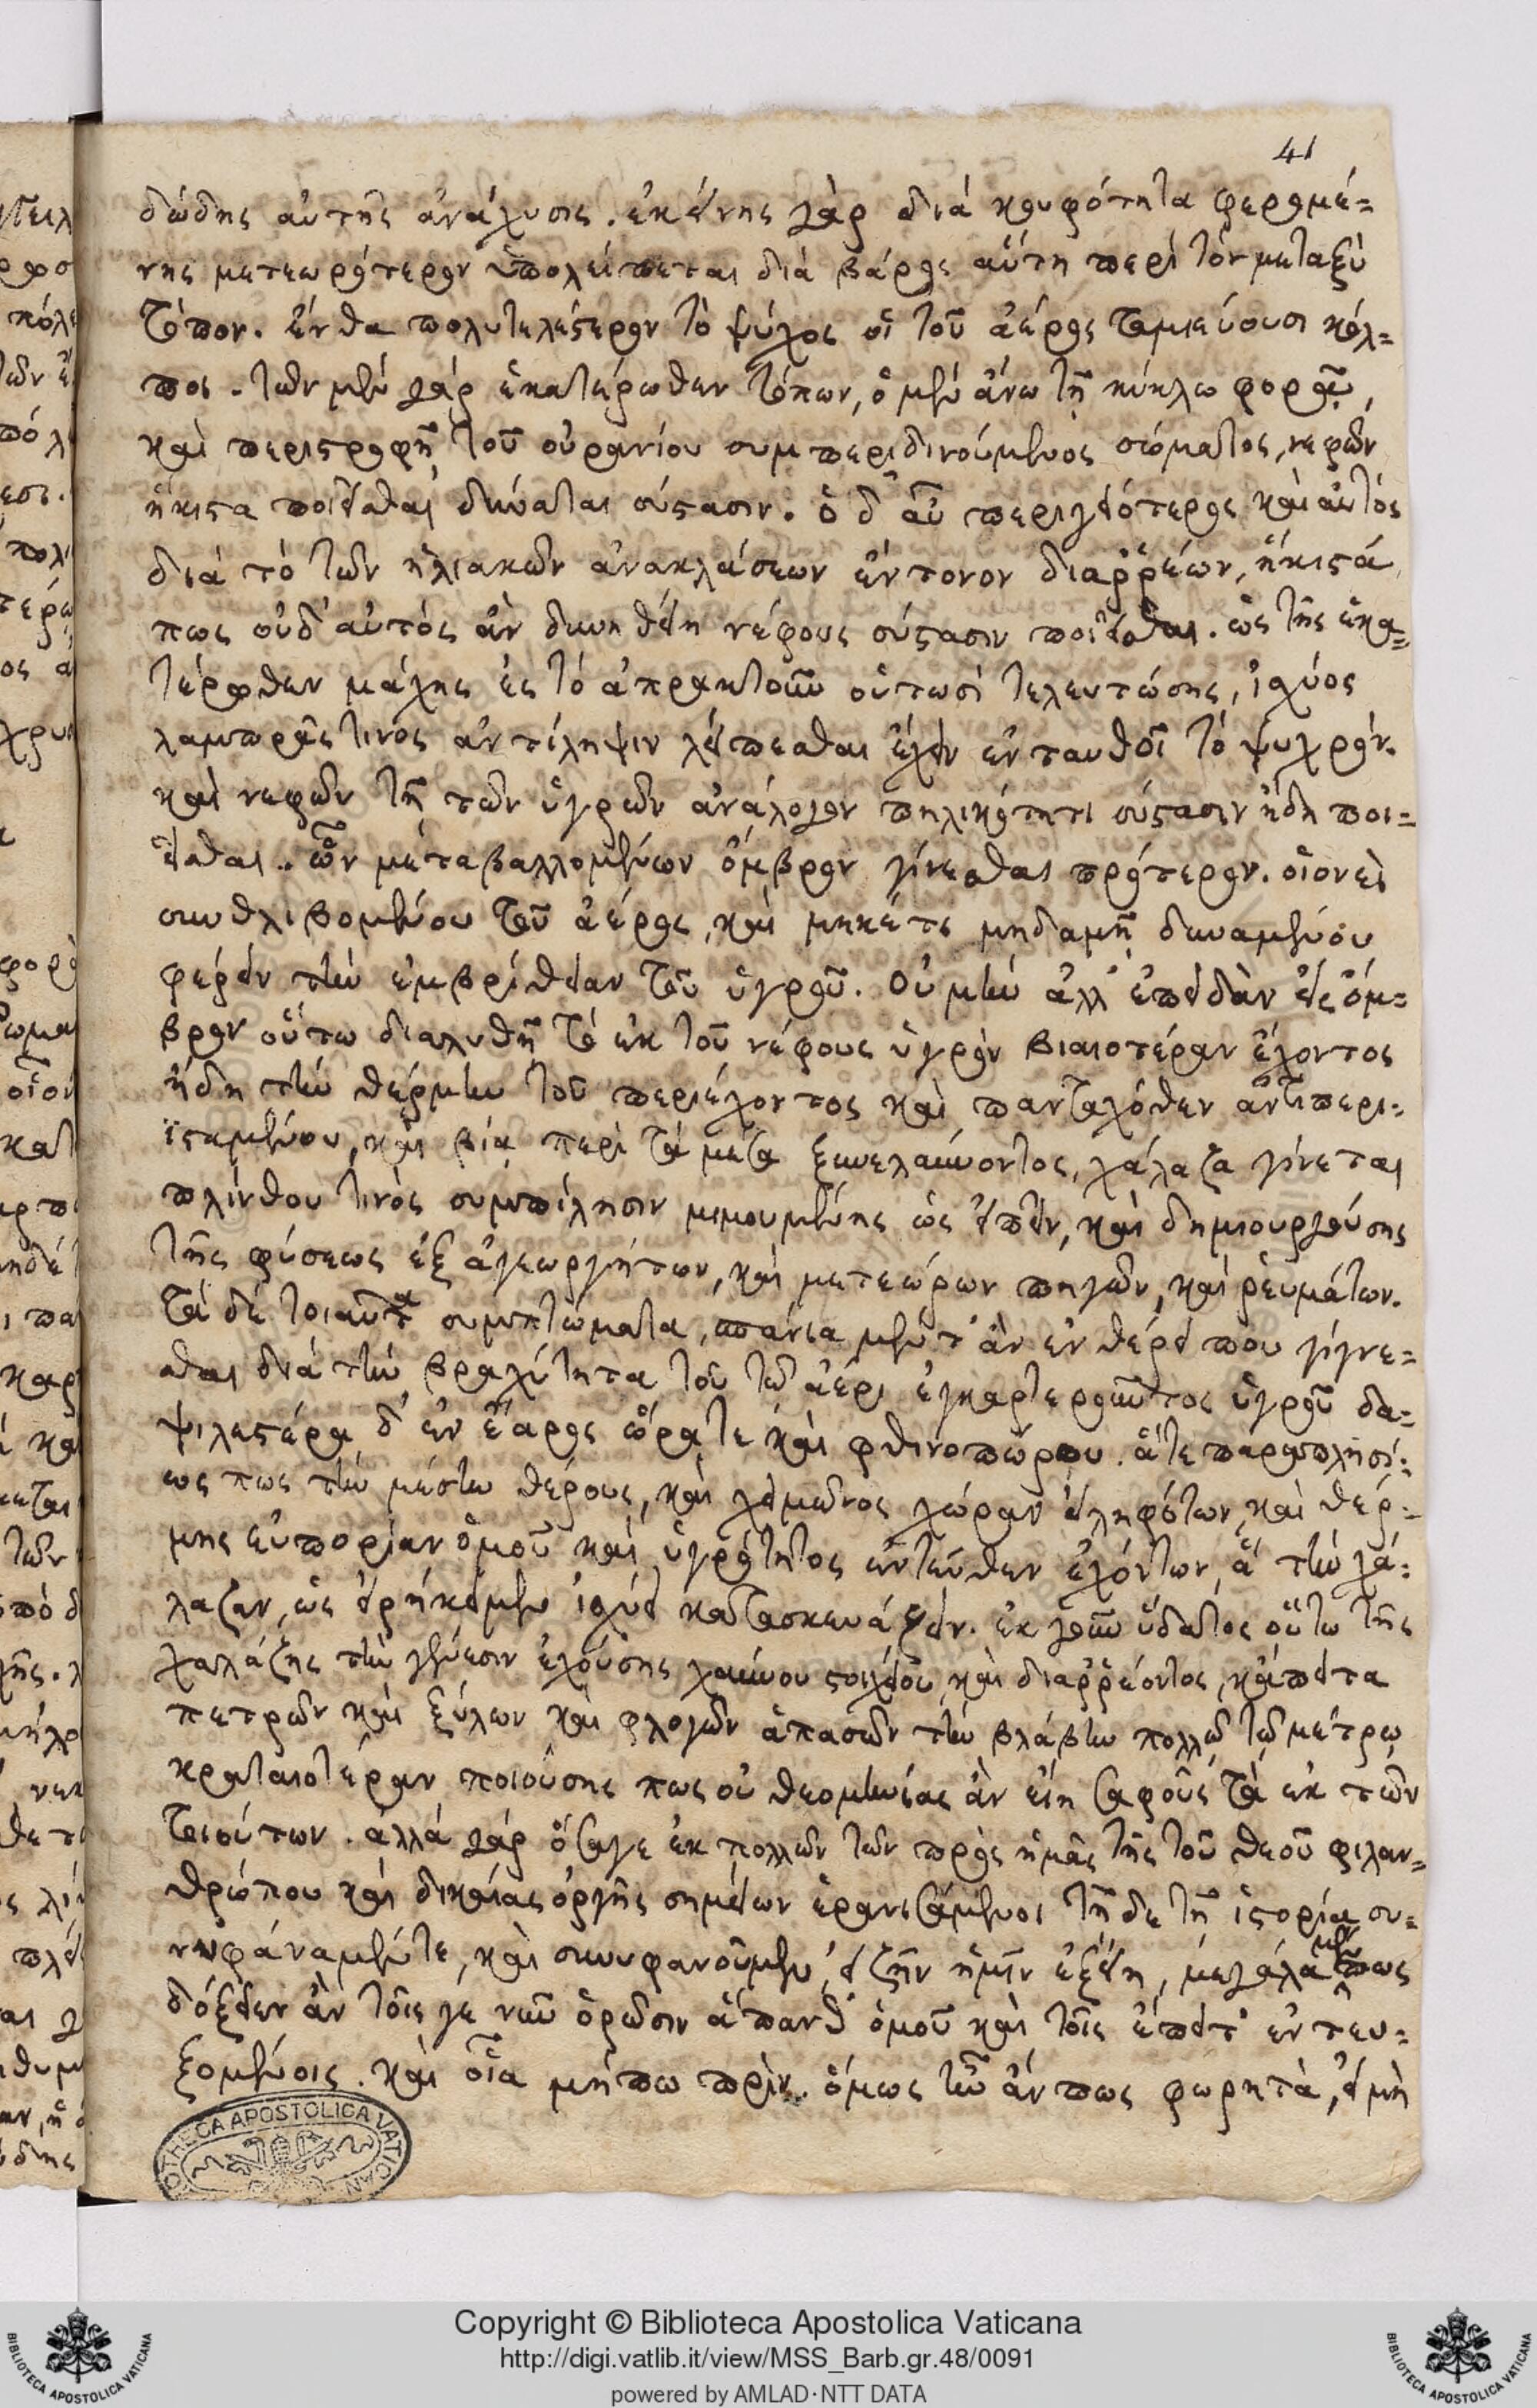 41
δώδης αὐτῆς ἀνάλυσις. ἐκείνης γὰρ διὰ κουφότητα φερομέ=
νης μετεωρότερον ὑπολείπεται διὰ βάρος αὕτη περὶ τὸν μεταξὺ
τόπον. ἔνθα πολυτελέστερον τὸ ψύχος οἱ τοῦ ἀέρος ταμιεύουσι κόλ=
ποι. τῶν μὲν γὰρ ἑκατέρωθεν τόπων, ὁ μὲν ἄνω τῇ κύκλω φορᾷ,
καὶ περιστροφῇ τοῦ οὐρανίου συμπεριδινούμενος σώματος, νεφῶν
ἥκιστα ποιεῖσθαι δύναται σύστασιν. ὁ δ' αὖ περιγειότερος καὶ αὐτὸς
διὰ τὸ τῶν ἡλιακῶν ἀνακλάσεων ἔντονον διαῤῥέων, ἥκιστά
πως οὐδ' αὐτὸς ἂν δυνηθείη νέφους σύστασιν ποιεῖσθαι. ὡς τῆς ἑκα=
τέρωθεν μάχης ἐς τὸ ἀπρακτοῦν οὑτωσὶ τελευτώσης, ἰσχύος
λαμπρᾶς τινὸς ἀντίληψιν λείπεσθαι ἔχειν ἐνταυθοῖ τὸ ψυχρόν.
καὶ νεφῶν τῇ τῶν ὑγρῶν ἀνάλογον πηλικότητι σύστασιν ἤδη ποι=
εῖσθαι. ὧν μεταβαλλομένων ὄμβρον γίνεσθαι πρότερον. οἱονεὶ
συνθλιβομένου τοῦ ἀέρος, καὶ μηκέτι μηδαμῇ δυναμένου
φέρειν τὴν ἐμβρίθειαν τοῦ ὑγροῦ. Οὐ μὴν ἀλλ' ἐπειδὰν εἰς ὄμ=
βρον οὕτω διαλυθῇ τὸ ἐκ τοῦ νέφους ὑγρὸν βιαιοτέραν ἔχοντος
ἤδη τὴν θέρμην τοῦ περιέχοντος καὶ πανταχόθεν ἀντιπερι=
ϊσταμένου, καὶ βίᾳ περὶ τὰ μέσα ξυνελαύνοντος, χάλαζα γίνεται
πλίνθου τινὸς συμπίλησιν μιμουμένης ὡς εἰπεῖν, καὶ δημιουργούσης
τῆς φύσεως ἐξ ἀγεωργήτων, καὶ μετεώρων πηγῶν, καὶ ῥευμάτων.
τὰ δὲ τοιαῦτα συμπτώματα, σπάνια μὲν τ' ἂν ἐν θέρει που γίγνε=
σθαι διὰ τὴν βραχύτητα τοῦ τῶ ἀέρι ἐγκαρτεροῦντος ὑγροῦ δα=
ψιλεστέρα δ' ἐν ἔαρος ὥρᾳ τε καὶ φθινοπώρου. ἅτε παραπλησί=
ως πως τὴν μέσην θέρους, καὶ χειμῶνος χώραν εἰληφότων, καὶ θέρ=
μης εὐπορίαν ὁμοῦ καὶ ὑγρότητος ἐντεῦθεν ἐχόντων, ἃ τὴν χά=
λαζαν, ὡς εἰρήκειμεν ἰσχύει κατασκευάζειν. ἐκ γοῦν ὕδατος οὕτω τῆς
χαλάζης τὴν γένεσιν ἐχούσης χαύνου στοιχείου, καὶ διαῤῥέοντος, κἄπειτα
πετρῶν καὶ ξύλων καὶ φλογῶν ἁπασῶν τὴν βλάβην πολλῷ τῷ μέτρω
κραταιοτέραν ποιούσης πως οὐ θεομηνίας ἂν εἴη σαφοῦς τὰ ἐκ τῶν
τοιούτων. ἀλλὰ γὰρ ὅσα γε ἐκ πολλῶν τῶν πρὸς ἡμᾶς τῆς τοῦ θεοῦ φιλαν=
θρώπου καὶ δικαίας ὀργῆς σημείων ἐρανισάμενοι τῇδε τῇ ἱστορίᾳ συ=
νυφάναμέντε, καὶ συνυφανοῦμεν, εἰ ζῆν ἡμῖν ἐξείη, μεγάλα μέν πως
δόξειεν ἂν τοῖς γε νῦν ὁρῶσιν ἅπανθ' ὁμοῦ καὶ τοῖς ἔπειτ' ἐντευ=
ξομένοις. καὶ οἷα μήπω πρὶν. ὅμως τῶ ἄν πως φωρητὰ, εἰ μὴ
Copyright © Biblioteca Apostolica Vaticana
http://digi.vatlib.it/view/MSS_Barb.gr.48/0091
powered by AMLAD·NTT DATA